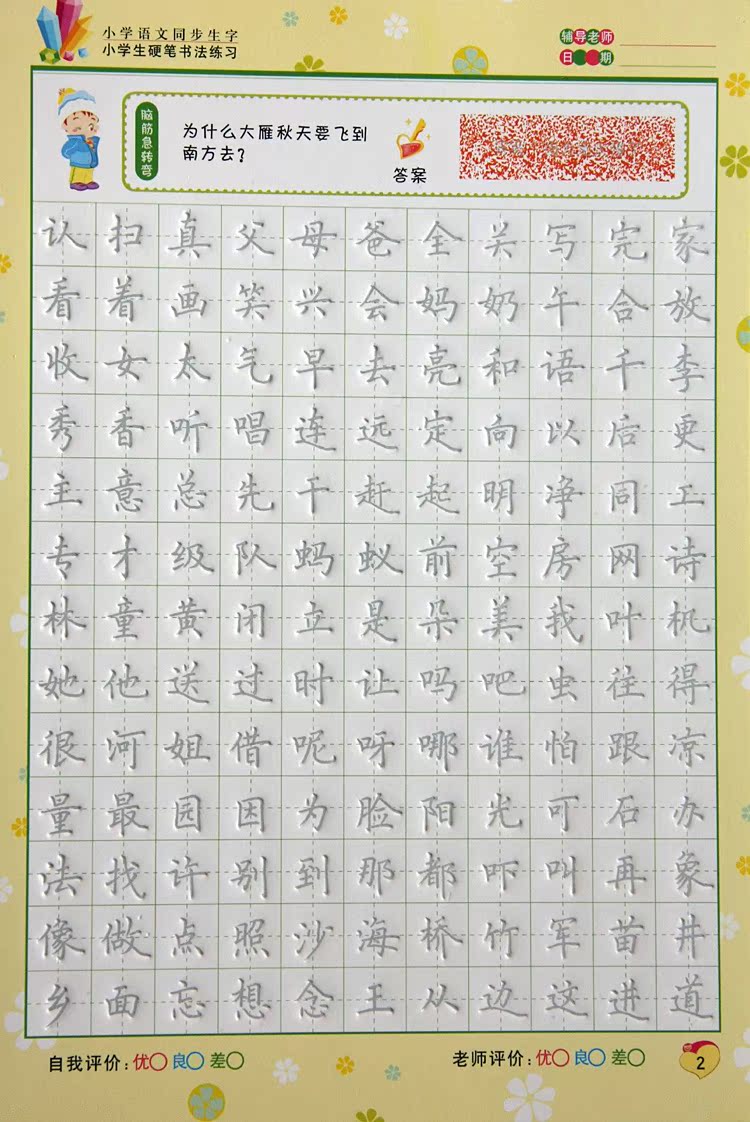 小学语文同步生字
小学生硬笔书法练习
辅导老师
日期
脑筋急转弯
为什么大雁秋天要飞到
南方去？
答案
认扫真父母爸全关写完家
看着画笑兴会妈奶午合放
收女太气早去亮和语千李
秀香听唱连远定向以后更
主意总先干赶起明净同工
专才级队蚂蚁前空房网诗
林童黄闭立是朵美我叶机
她他送过时让吗吧虫往得
很河姐借呢呀哪谁怕跟凉
量最园因为脸阳光可石办
法找许别到那都吓叫再象
像做点照沙海桥竹军苗井
乡面忘想念王从边这进道
自我评价:优○ 良○ 差○
老师评价:优○ 良○ 差○
2